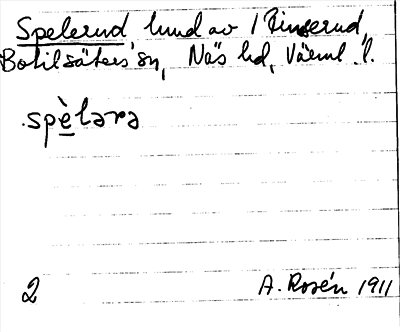 Spelerud hmd av 1 Rinnerud,
Botilsäters sn, Näs hd, Värml. l.
spèlara
2 A. Rosén 1911